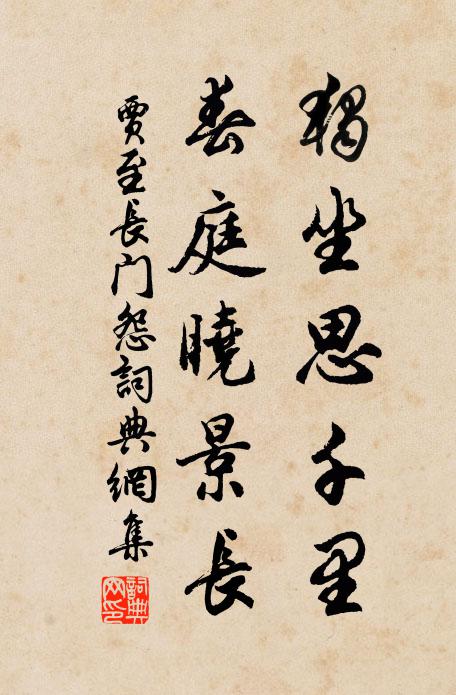 獨坐思千里
春庭曉景長
賈至長門怨詞典網集
詞典網印